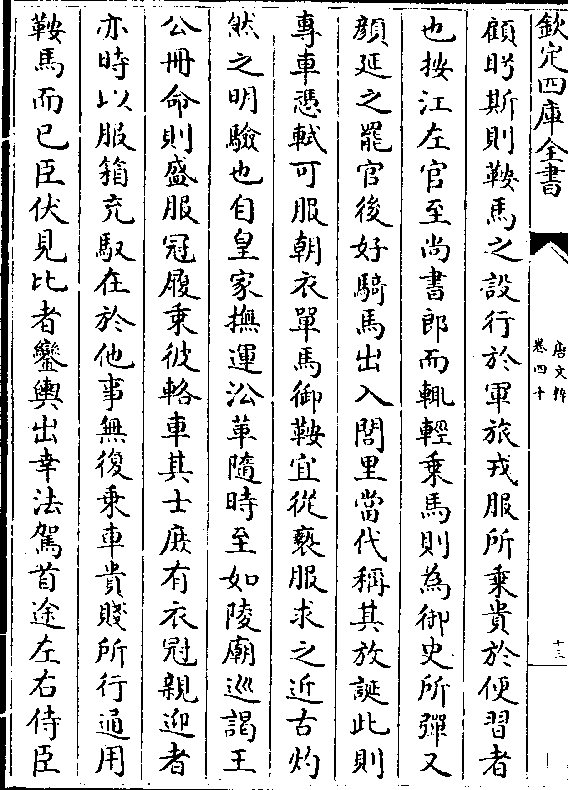 欽定四庫全書
唐文粹
卷四十
十三
顧眄斯則鞍馬之設行於軍旅戎服所乗貴於便習者
也按江左官至尚書郎而輒輕乗馬則為御史所彈又
顔延之罷官後好騎馬出入閭里當代稱其放誕此則
專車憑軾可服朝衣單馬御鞍宜從褻服求之近古灼
然之明驗也自皇家撫運㳂革隨時至如陵廟巡謁王
公冊命則盛服冠履乗彼輅車其士庶有衣冠親迎者
亦時以服箱充馭在於他事無復乗車貴賤所行通用
鞍馬而已臣伏見比者鑾輿出幸法駕首途左右侍臣